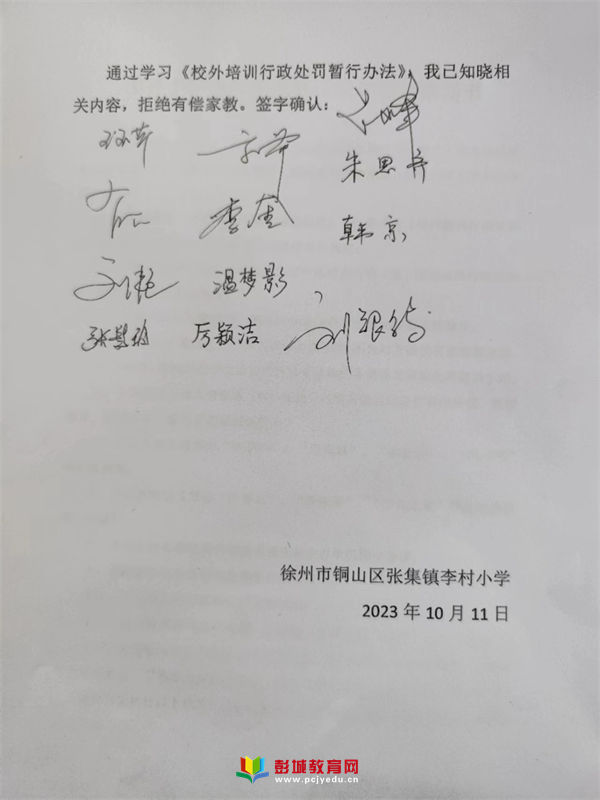 通过学习《校外培训行政处罚暂行办法》，我已知晓相
关内容，拒绝有偿家教。签字确认：
朱思齐
李奎
韩京
刘艳 温梦影
厉颖洁 刘银侠
徐州市铜山区张集镇李村小学
2023 年 10 月 11 日
彭城教育网
www.pcjyedu.cn